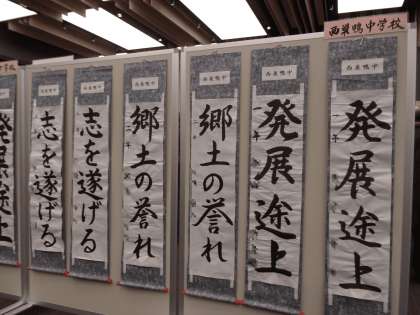 西巣鴨中学校
西巣鴨中
発展途上
西巣鴨中
発展途上
一年
西巣鴨中
郷土の誉れ
西巣鴨中
郷土の誉れ
西巣鴨中
志を遂げる
西巣鴨中
志を遂げる